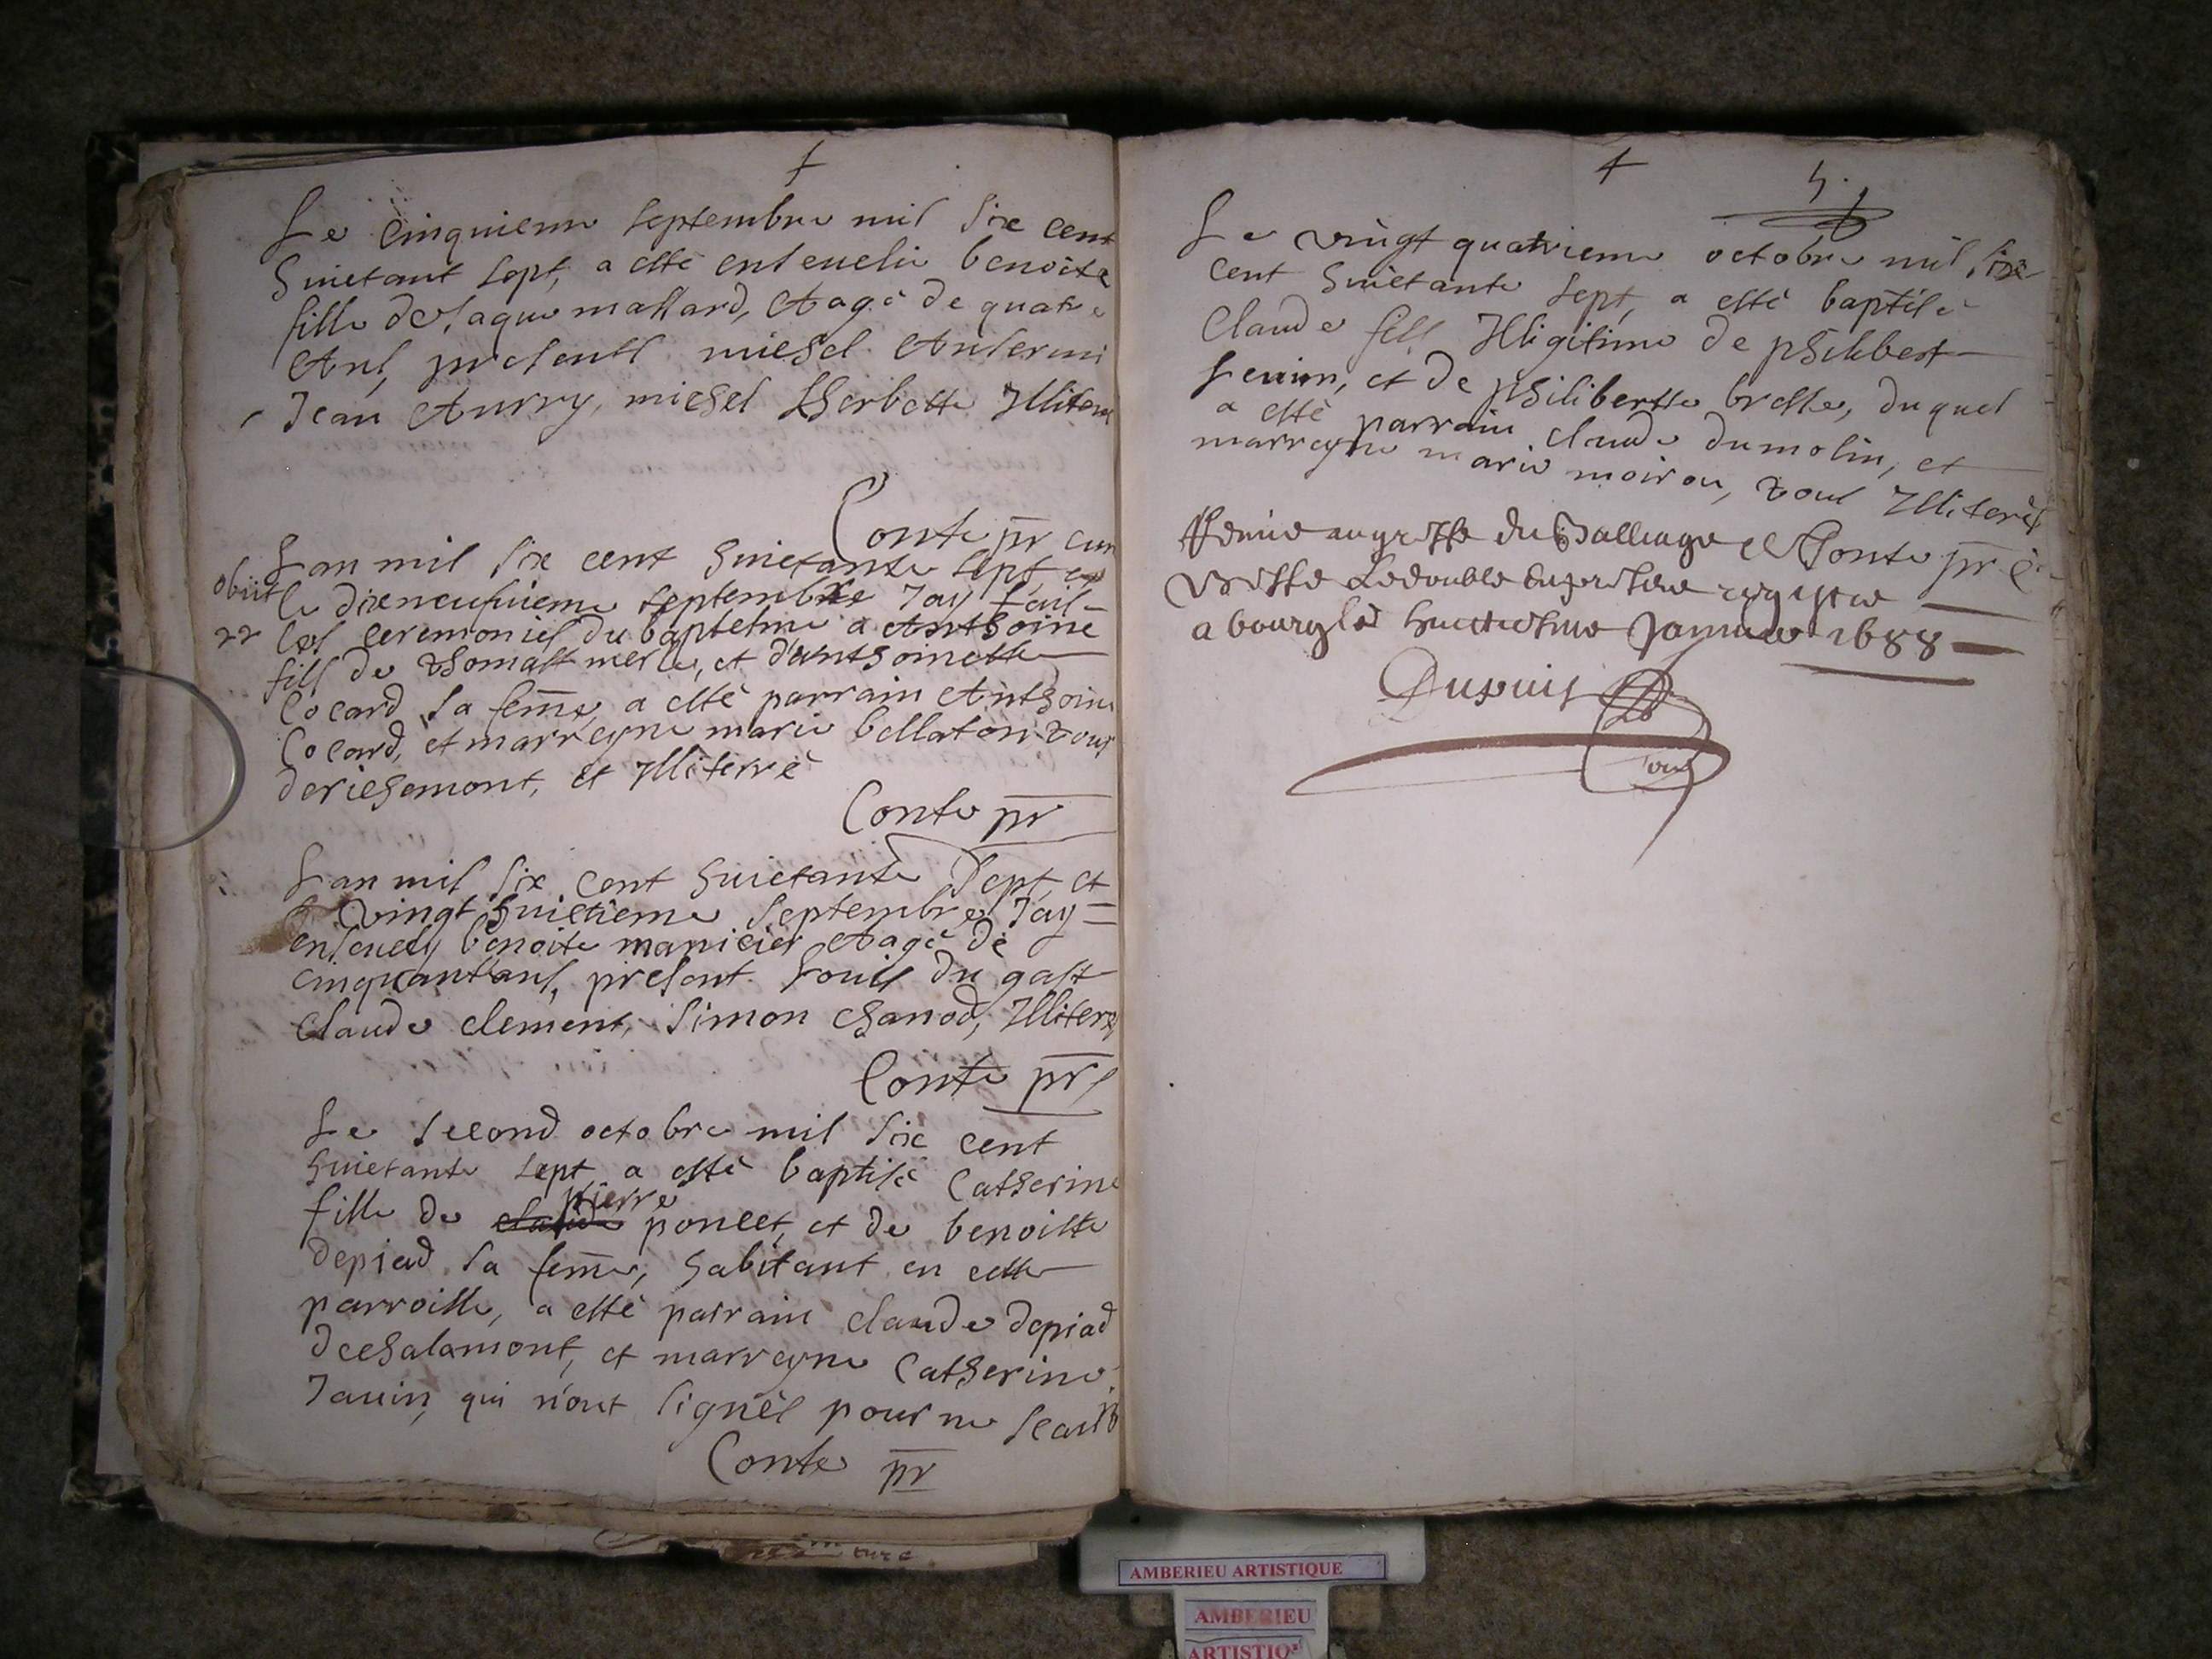 Le cinquieme septembre mil six cent
huictant sept, a esté enseuelie benoite
fille de Jaque massard, Aagé de quatre
Ans, presents michel Anselmi
Jean Aurry, michel Lherbette Illiteré
Conte pr cur
Lan mil six cent huictante sept, et
obiit le dixneufuieme septembre Jay fait
22 les ceremonies du baptesme a Anthoine
fils de thomas merle, et danthoinette
Cocard sa feme, a esté parrain Anthoine
Cocard, et marreyne marie bellaton tous
de richemont, et Illiterré
Conte pr
Lan mil six cent huictante sept, et
le Vingt huictieme septembre Jay =
enseuely benoite manicier Aagé de
cinquantans, present Louis du gast
Claude clement, Simon chanod, Illiteré
Conte pr
Le second octobre mil six cent
huictante sept a esté baptisé Catherine
pierre
fille de claude poncet, et de benoiste
depiad sa feme, habitant en cette
parroisse, a esté parrain claude depiad
de chalamont, et marreyne Catherine
Jauin, qui n'ont signés pour ne scauoir
Conte pr
Le vingt quatrieme octobre mil six
cent huictante sept, a esté baptisé
Claude fils Illigitime de philibert
, et de philibertte brette, duquel
a esté parrain claude dumolin, et
marreyne marie moiron, tous Illiterés
Conte pr c
Remis au greffe du Balliage
Bresse Le double du present registre
a bourg le huictiesme Januier 1688
Dupuis